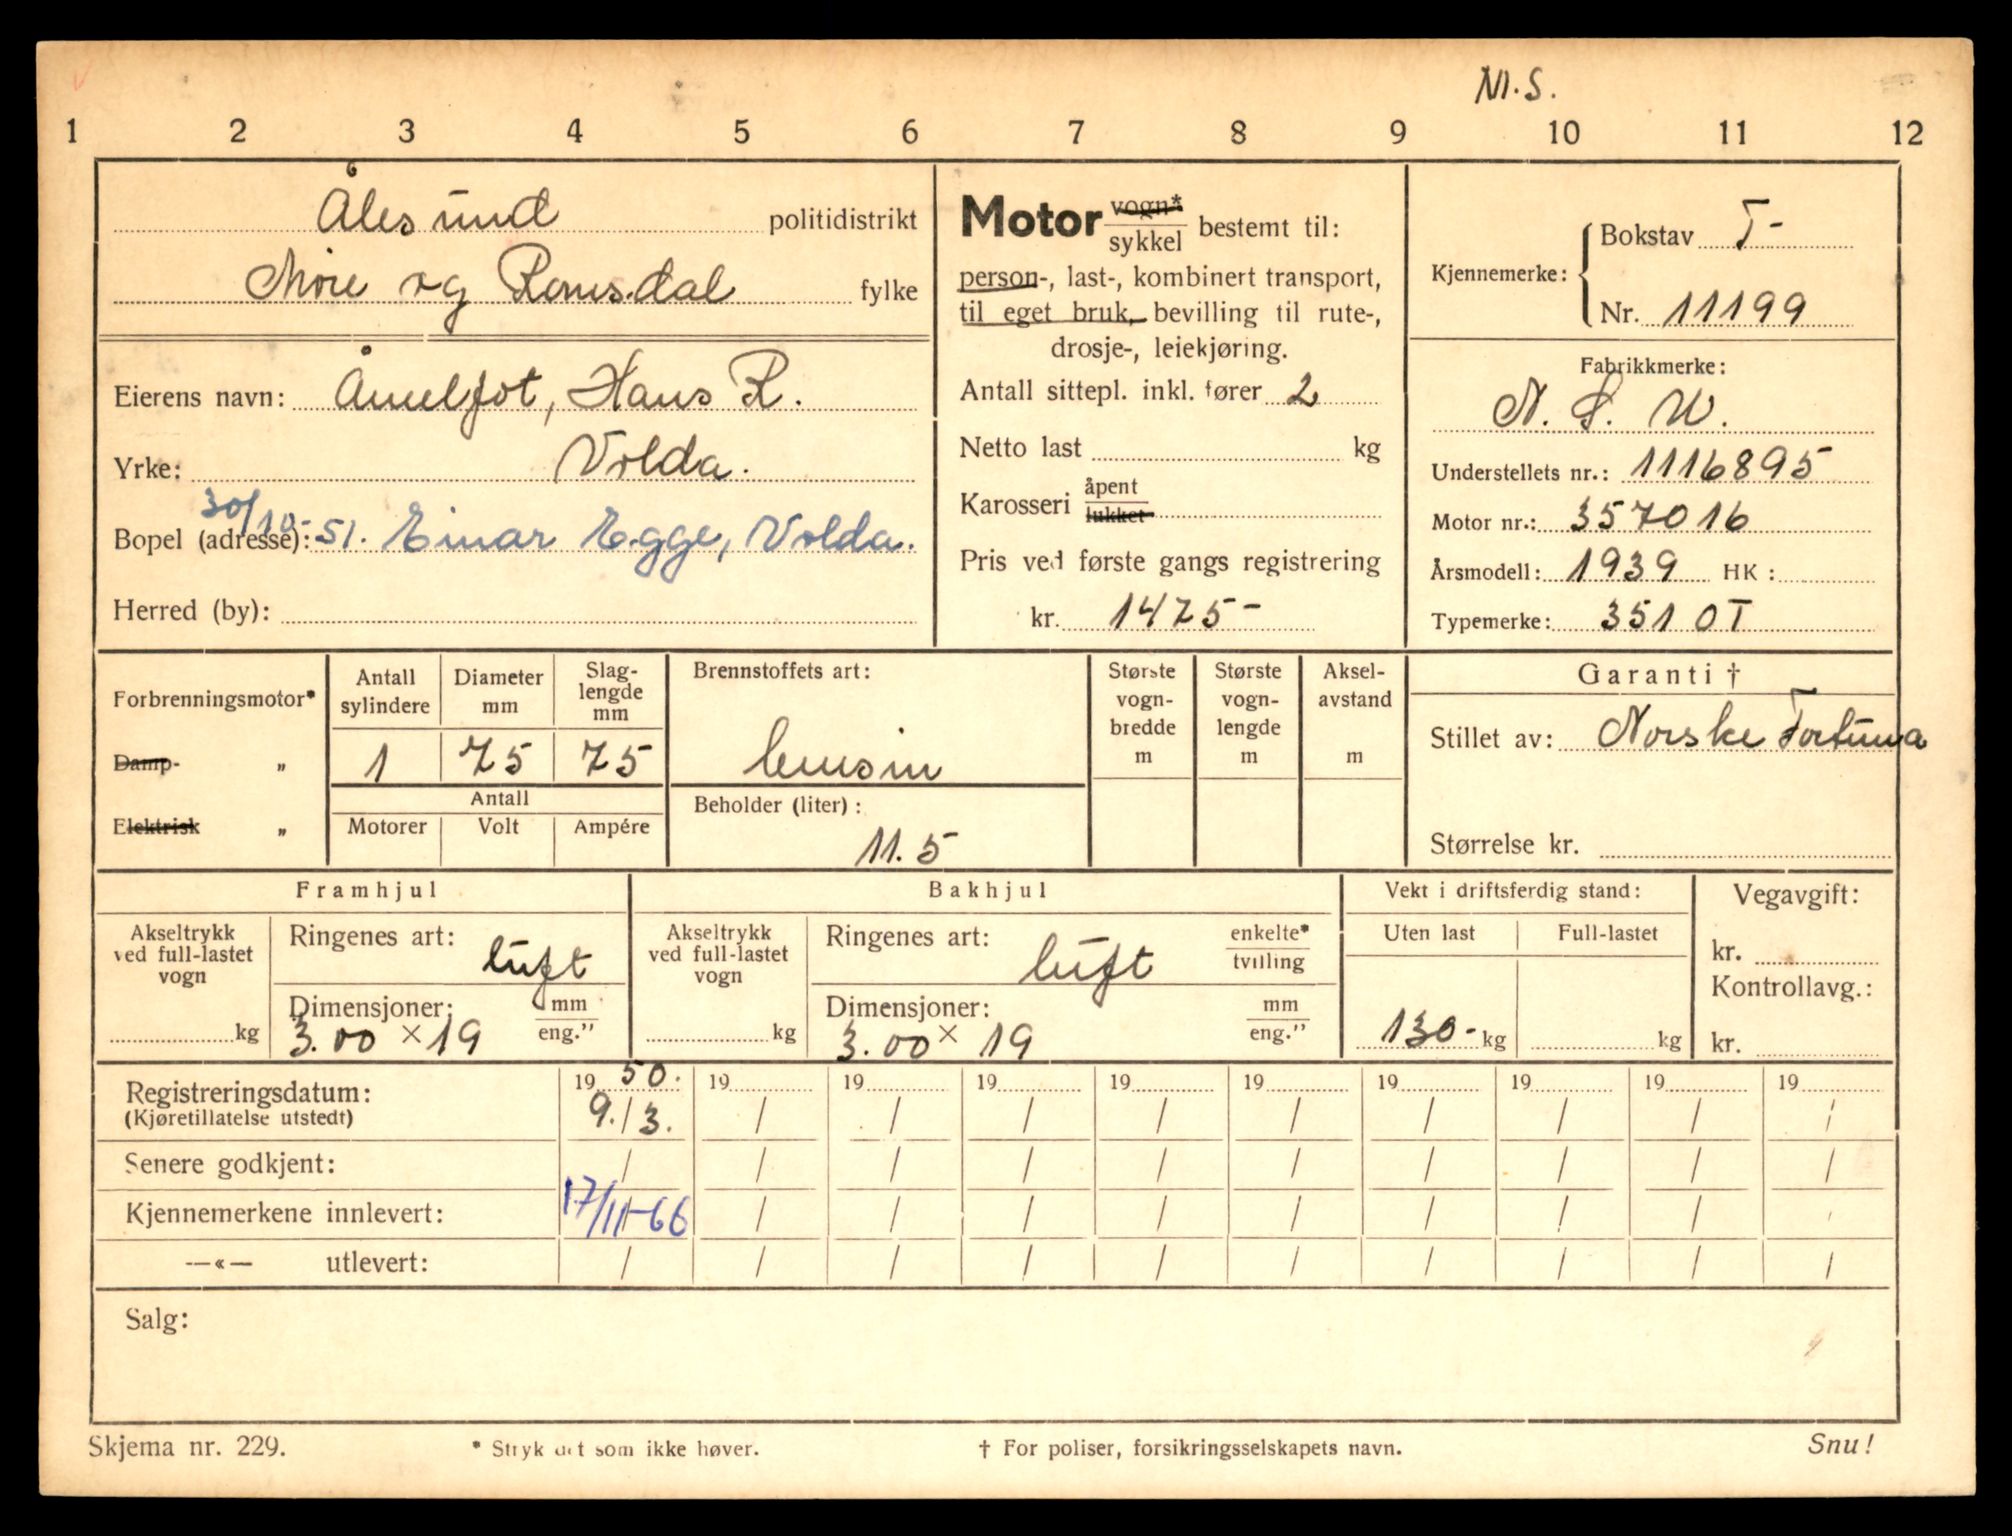 M.S.
1 2 3 4 5 6 7 8 9 10 11 12
Ålesund politidistrikt
Møre og Romsdal fylke
Eierens navn: Åmelfot, Hans R.
Yrke: Volda.
Bopel (adresse): 30/10-51. Einar Egge, Volda.
Herred (by):
Motor vogn* sykkel bestemt til:
person-, last-, kombinert transport,
til eget bruk, bevilling til rute-,
drosje-, leiekjøring.
Antall sittepl. inkl. fører 2
Netto last kg
Karosseri åpent lukket
Pris ved første gangs registrering
kr. 1475-
Kjennemerke: Bokstav T-
Nr. 11199
Fabrikkmerke:
N. S. U.
Understellets nr.: 1116895
Motor nr.: 357016
Årsmodell: 1939 HK:
Typemerke: 351 OT
Forbrenningsmotor*
Damp- „
Elektrisk „
Antall sylindere
1
Diameter mm
75
Slag-lengde mm
75
Antall
Motorer Volt Ampére
Brennstoffets art:
bensin
Beholder (liter):
11.5
Største vogn-bredde m
Største vogn-lengde m
Aksel-avstand m
Garanti †
Stillet av: Norske Fortuna
Størrelse kr.
Framhjul
Akseltrykk ved full-lastet vogn
kg
Ringenes art: luft
Dimensjoner: mm eng."
3.00 × 19
Bakhjul
Akseltrykk ved full-lastet vogn
kg
Ringenes art: luft enkelte* tvilling
Dimensjoner: mm eng."
3.00 × 19
Vekt i driftsferdig stand:
Uten last Full-lastet
130- kg kg
Vegavgift:
kr.
Kontrollavg.:
kr.
Registreringsdatum: 19 50. 19 19 19 19 19 19 19 19 19
(Kjøretillatelse utstedt) 9./3. / / / / / / / / /
Senere godkjent: / / / / / / / / / /
Kjennemerkene innlevert: 17/11-66 / / / / / / / / /
—«— utlevert: / / / / / / / / / /
Salg:
Skjema nr. 229. * Stryk det som ikke høver. † For poliser, forsikringsselskapets navn. Snu!